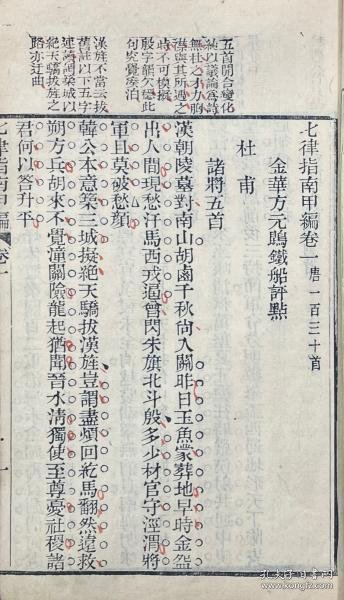 七律指南甲編卷一 唐一百三十首
金華方元鵾鐵船評點
杜甫
諸將五首
漢朝陵墓對南山胡虜千秋尙入關昨日玉魚蒙葬地早時金盌
出人間現愁汗馬西戎逼曾閃朱旗北斗殷多少材官守涇渭將
軍且莫破愁顏
韓公本意築三城擬絕天驕拔漢旌豈謂盡煩回紇馬翻然遠救
朔方兵胡來不覺潼關隘龍起猶聞晉水清獨使至尊憂社稷諸
君何以答升平
五首開合變化
純以議論爲詩
無杜之才力胸
襟與其所遇之
時不可模擬
殷字韻欠變此
句究覺湊泊
漢旌不當言拔
舊註以下五字
連讀謂築城以
絕天驕拔旌之
路亦迂曲
七律指南甲編 卷一
孔夫子旧书网